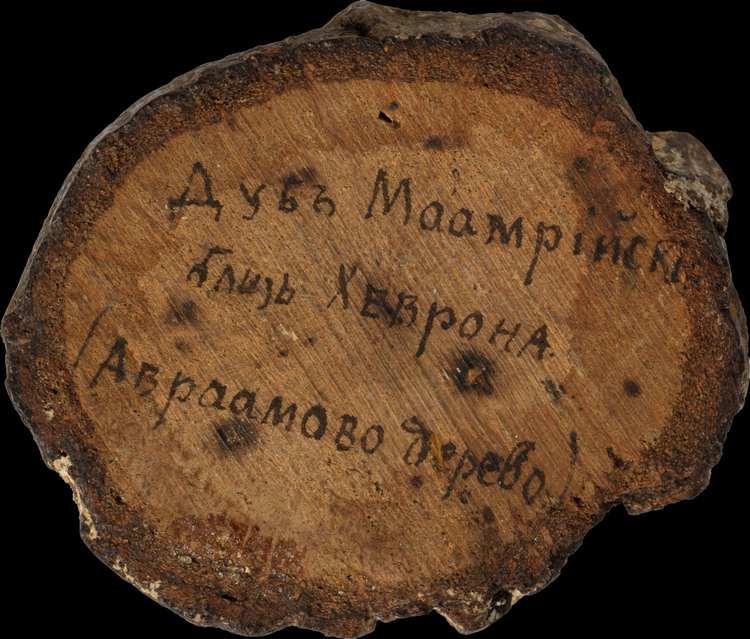 Дубъ Маамрійскі
близь Хеврона.
(Авраамово дерево)